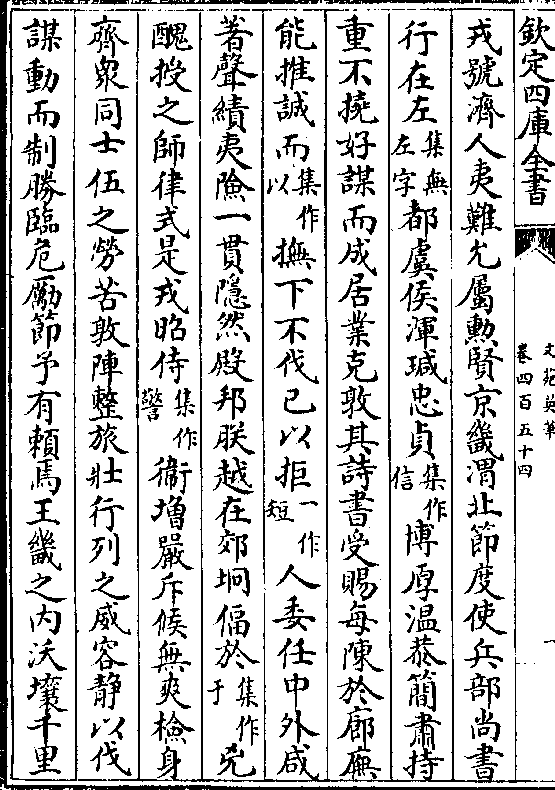 欽定四庫全書
文苑英華
卷四百五十四
一
戎號濟人夷難允屬勲賢京畿渭北節度使兵部尚書
行在左集無左字都虞侯渾瑊忠貞集作信博厚温恭簡肅持
重不撓好謀而成居業克敦其詩書受賜每陳於廊廡
能推誠而集作以撫下不伐已以拒一作短人委任中外咸
著聲績夷險一貫隱然殿邦朕越在郊坰偪於集作于兇
醜授之師律式是戎昭侍集作警衞增嚴斥候無爽檢身
齊衆同士伍之勞苦敦陣整旅壯行列之威容静以伐
謀動而制勝臨危厲節予有賴焉王畿之内沃壤千里